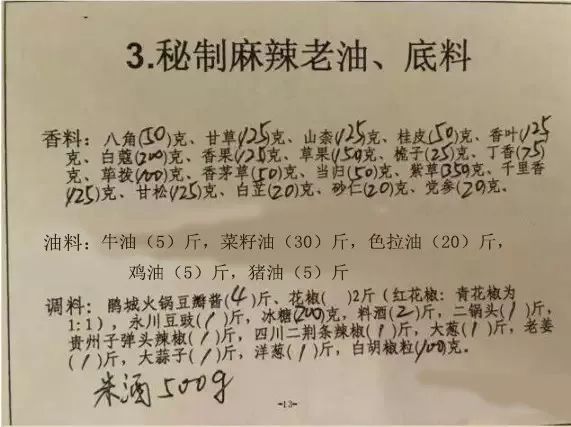 3.秘制麻辣老油、底料
香料：八角(50)克、甘草(125)克、山柰(125克、桂皮(50)克、香叶(125
克、白蔻(200)克、香果(125克、草果(150克、栀子(25)克、丁香(75)
克、荜拨(100)克、香茅草(50)克、当归(50)克、紫草(350克、千里香
(125)克、甘松(125)克、白芷(20)克、砂仁(20)克、党参(20克。
油料：牛油（5）斤，菜籽油（30）斤，色拉油（20）斤，
鸡油（5）斤，猪油（5）斤
调料：鹃城火锅豆瓣酱(4)斤、花椒(　)2斤（红花椒：青花椒为
1:1），永川豆豉(1)斤，冰糖(200)克，料酒(2)斤，二锅头(1)斤，
贵州子弹头辣椒(1)斤，四川二荆条辣椒(1)斤，大葱(1)斤，老姜
(1)斤，大蒜子(1)斤，洋葱(1)斤，白胡椒粒(100)克。
米酒500g
-13-